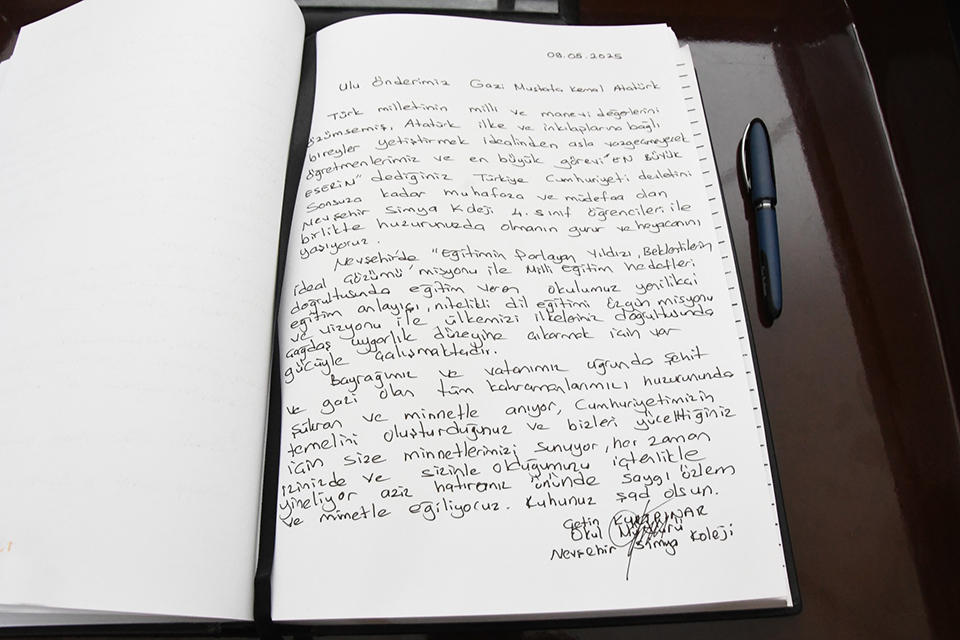 09.05.2025
Ulu Önderimiz Gazi Mustafa Kemal Atatürk
Türk milletinin milli ve manevi değerlerini
özümsemiş, Atatürk ilke ve inkılaplarına bağlı
bireyler yetiştirmek idealinden asla vazgeçmeyecek
öğretmenlerimiz ve en büyük görevi "EN BÜYÜK
ESERİM" dediğiniz Türkiye Cumhuriyeti devletini
Sonsuza kadar muhafaza ve müdefaa olan
Nevşehir Simya Koleji 4. sınıf öğrencileri ile
birlikte huzurunuzda olmanın gurur ve heyacanını
yaşıyoruz.
Nevşehir'de "Eğitimin Parlayan Yıldızı, Beklentilerin
ideal Çözümü" misyonu ile Milli Eğitim hedefleri
doğrultusunda eğitim veren okulumuz yenilikçi
eğitim anlayışı, nitelikli dil eğitimi özgün misyonu
ve vizyonu ile ülkemizi ilkeleriniz doğrultusunda
çağdaş uygarlık düzeyine çıkarmak için var
gücüyle çalışmaktadır.
Bayrağımız ve vatanımız uğrunda şehit
ve gazi olan tüm kahramanlarımızı huzurunuzda
şükran ve minnetle anıyor, Cumhuriyetimizin
temelini oluşturduğunuz ve bizleri yücelttiğiniz
için size minnetlerimizi sunuyor, her zaman
izinizde ve sizinle olduğumuzu içtenlikle
yineliyor aziz hatıranız önünde saygı özlem
ve minetle eğiliyoruz. Ruhunuz şad olsun.
Çetin
Okul Müdürü
Nevşehir Simya Koleji